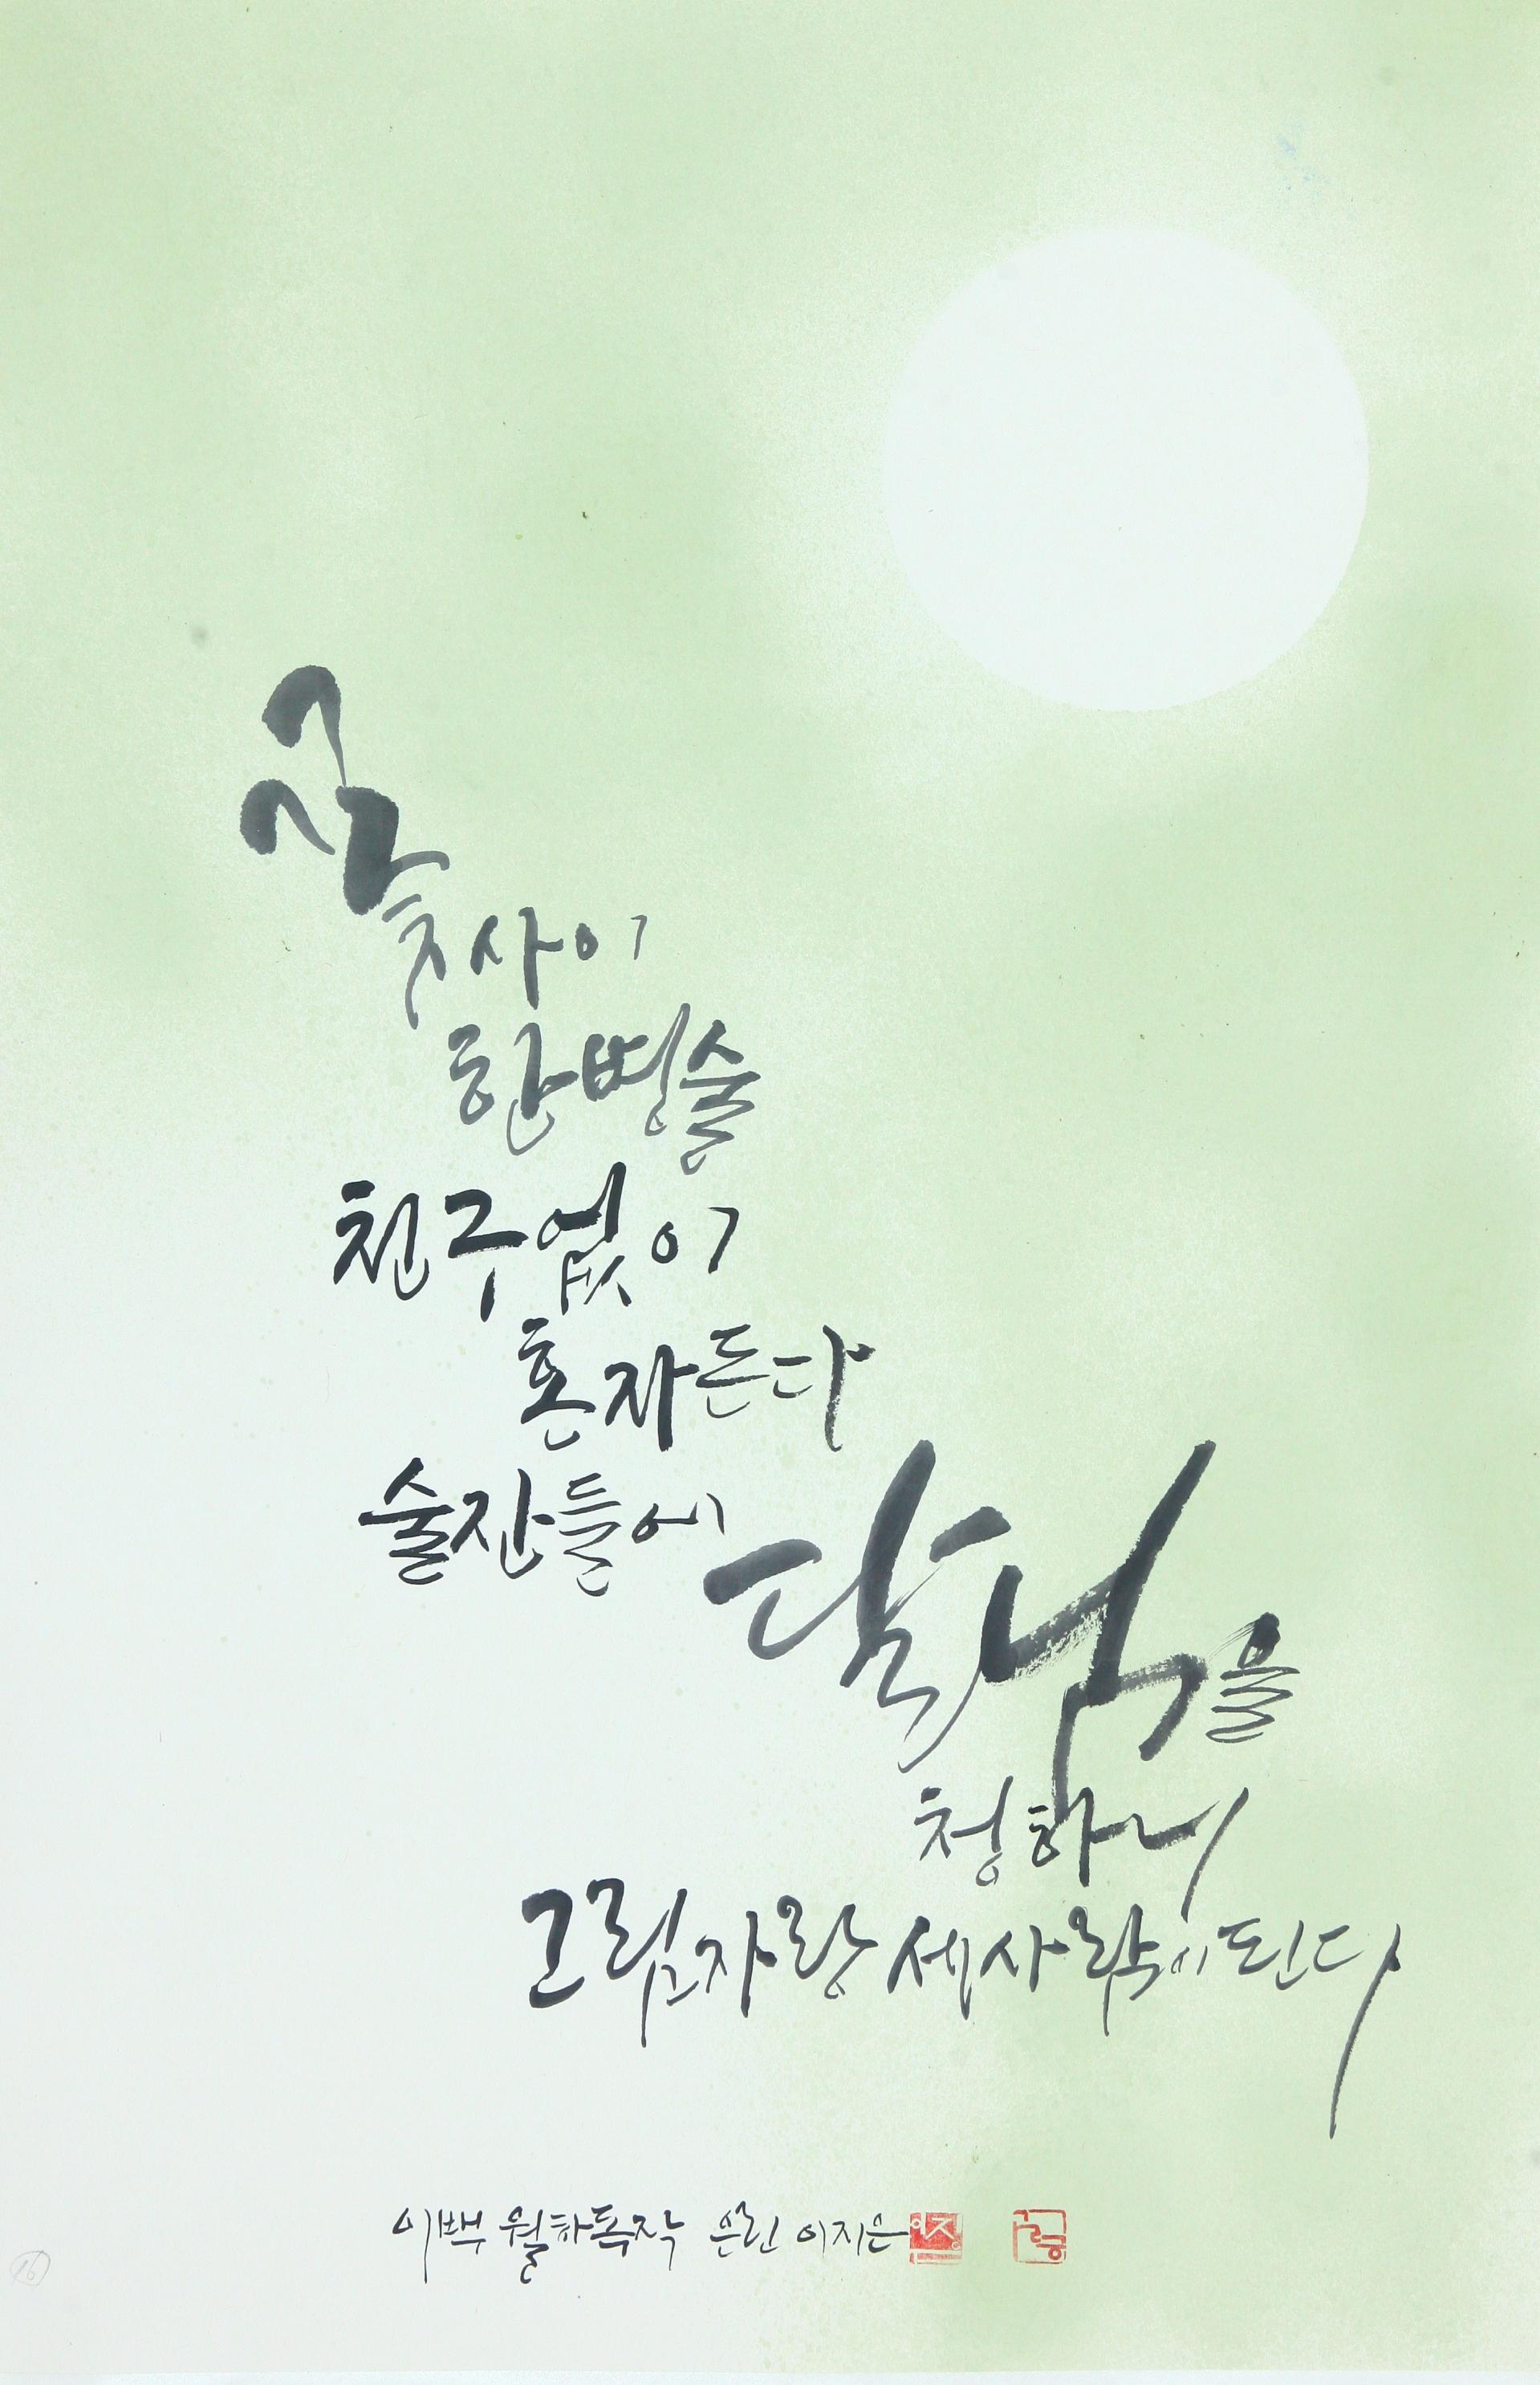 꽃 사이
한 병 술
친구 없이
혼자 든다
술잔 들어 달님을
청하니
그림자랑 세사람이 된다
이백 월하독작 은린 이지은